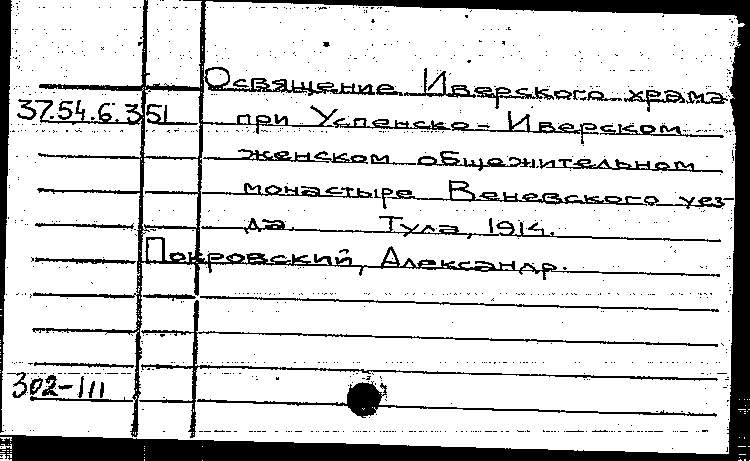 Освящение Иверского храма
37.54.6.351 при Успенско-Иверском
женском общежительном
монастыре Веневского уез-
да. Тула, 1914.
Покровский, Александр.
302-III